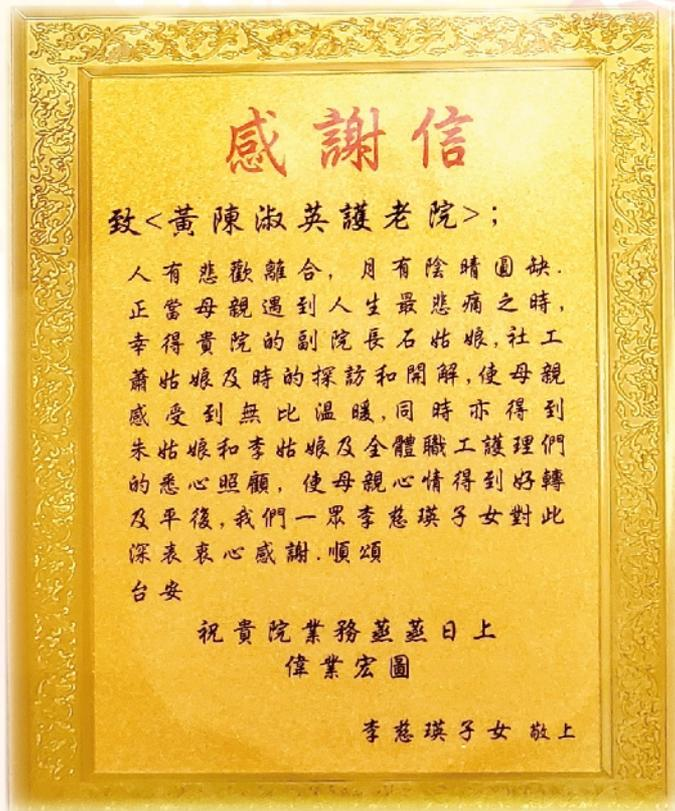 感謝信
致<黃陳淑英護老院>;
人有悲歡離合, 月有陰晴圓缺.
正當母親遇到人生最悲痛之時,
幸得貴院的副院長石姑娘,社工
蕭姑娘及時的探訪和開解,使母親
感受到無比溫暖,同時亦得到
朱姑娘和李姑娘及全體職工護理們
的悉心照顧, 使母親心情得到好轉
及平後,我們一眾李慈瑛子女對此
深表衷心感謝.順頌
台安
祝貴院業務蒸蒸日上
偉業宏圖
李慈瑛子女 敬上